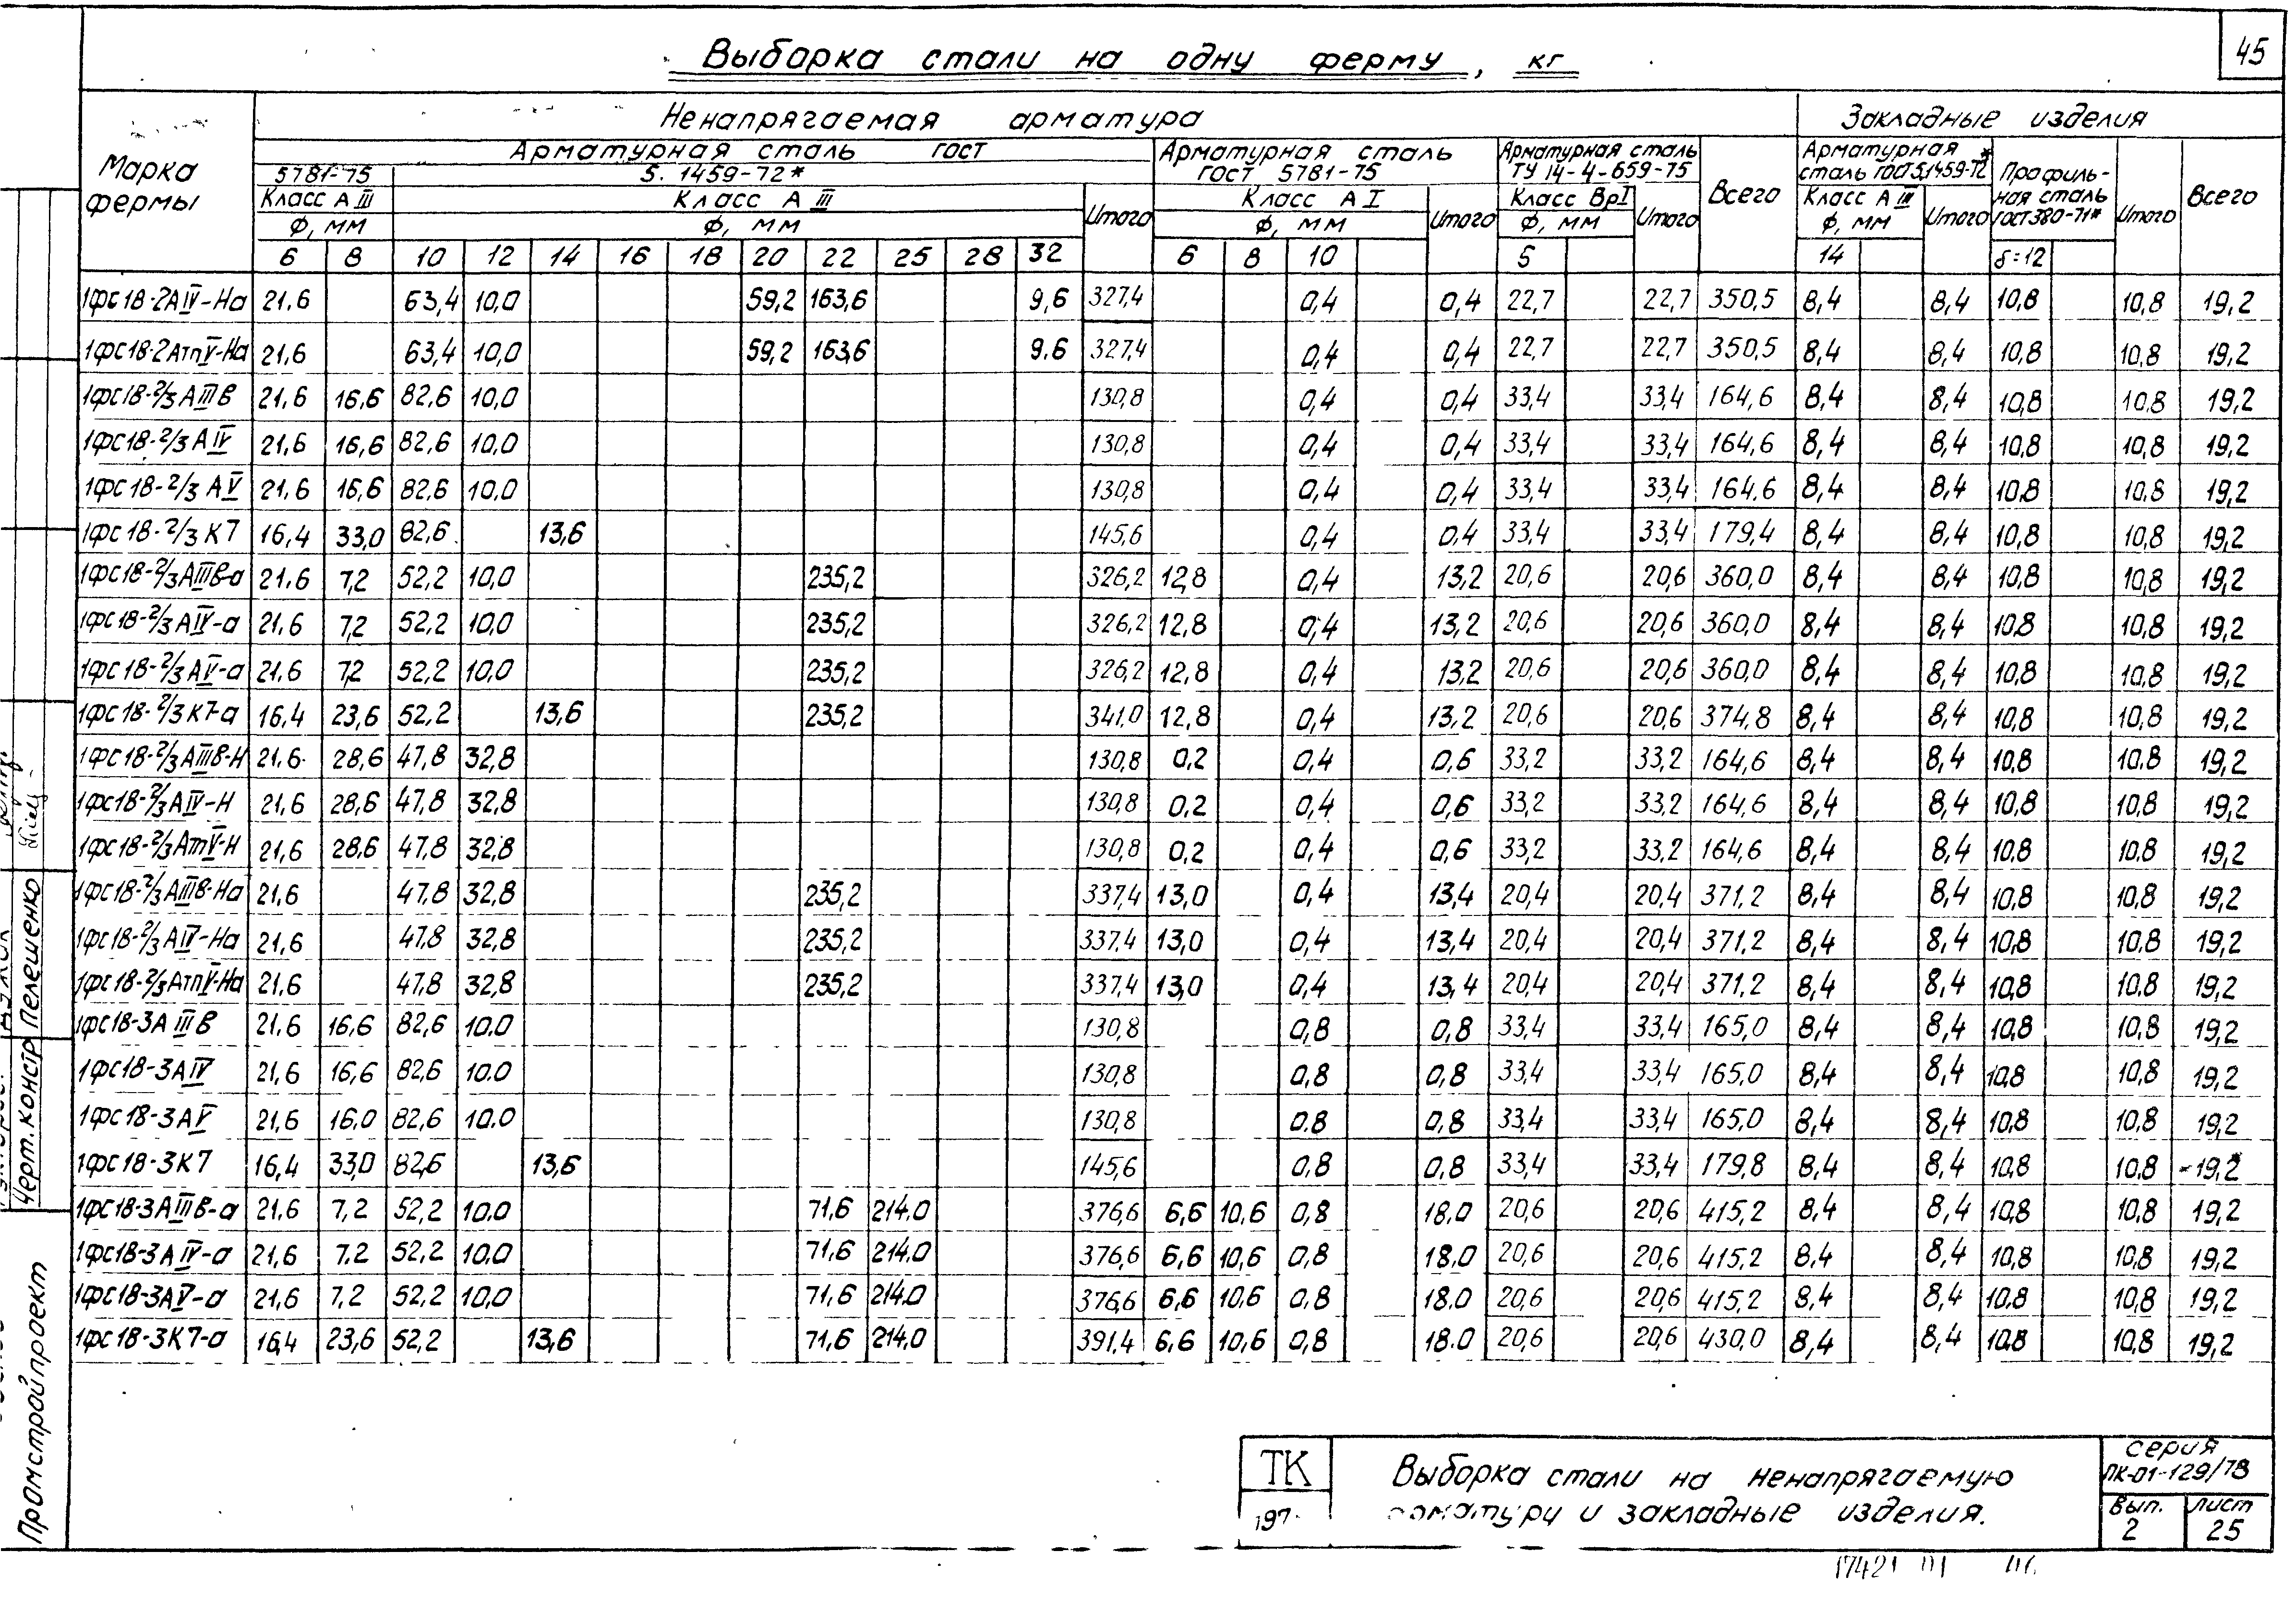 45
Выборка стали на одну ферму, кг
Марка фермы
Ненапрягаемая арматура
Закладные изделия
Арматурная сталь ГОСТ
Арматурная сталь ГОСТ 5781-75
Арматурная сталь ТУ 14-4-659-75
Всего
Арматурная сталь ГОСТ 5.1459-72*
Профильная сталь ГОСТ 380-71*
Итого
Всего
5781-75
5.1459-72*
Класс А III
Класс А III
Итого
Класс А I
Итого
Класс Вр I
Итого
Класс А III
Итого
Ф, мм
Ф, мм
Ф, мм
Ф, мм
Ф, мм
6 8 10 12 14 16 18 20 22 25 28 32 6 8 10 5 14 δ=12
1фс18-2АIV-На 21,6 63,4 10,0 59,2 163,6 9,6 327,4 0,4 0,4 22,7 22,7 350,5 8,4 8,4 10,8 10,8 19,2
1фс18-2АтпV-На 21,6 63,4 10,0 59,2 163,6 9,6 327,4 0,4 0,4 22,7 22,7 350,5 8,4 8,4 10,8 10,8 19,2
1фс18-2/3АIIIв 21,6 16,6 82,6 10,0 130,8 0,4 0,4 33,4 33,4 164,6 8,4 8,4 10,8 10,8 19,2
1фс18-2/3АIV 21,6 16,6 82,6 10,0 130,8 0,4 0,4 33,4 33,4 164,6 8,4 8,4 10,8 10,8 19,2
1фс18-2/3АV 21,6 16,6 82,6 10,0 130,8 0,4 0,4 33,4 33,4 164,6 8,4 8,4 10,8 10,8 19,2
1фс18-2/3К7 16,4 33,0 82,6 13,6 145,6 0,4 0,4 33,4 33,4 179,4 8,4 8,4 10,8 10,8 19,2
1фс18-2/3АIIIв-а 21,6 7,2 52,2 10,0 235,2 326,2 12,8 0,4 13,2 20,6 20,6 360,0 8,4 8,4 10,8 10,8 19,2
1фс18-2/3АIV-а 21,6 7,2 52,2 10,0 235,2 326,2 12,8 0,4 13,2 20,6 20,6 360,0 8,4 8,4 10,8 10,8 19,2
1фс18-2/3АV-а 21,6 7,2 52,2 10,0 235,2 326,2 12,8 0,4 13,2 20,6 20,6 360,0 8,4 8,4 10,8 10,8 19,2
1фс18-2/3К7-а 16,4 23,6 52,2 13,6 235,2 341,0 12,8 0,4 13,2 20,6 20,6 374,8 8,4 8,4 10,8 10,8 19,2
1фс18-2/3АIIIв-Н 21,6 28,6 47,8 32,8 130,8 0,2 0,4 0,6 33,2 33,2 164,6 8,4 8,4 10,8 10,8 19,2
1фс18-2/3АIV-Н 21,6 28,6 47,8 32,8 130,8 0,2 0,4 0,6 33,2 33,2 164,6 8,4 8,4 10,8 10,8 19,2
1фс18-2/3АтV-Н 21,6 28,6 47,8 32,8 130,8 0,2 0,4 0,6 33,2 33,2 164,6 8,4 8,4 10,8 10,8 19,2
1фс18-2/3АIIIв-На 21,6 47,8 32,8 235,2 337,4 13,0 0,4 13,4 20,4 20,4 371,2 8,4 8,4 10,8 10,8 19,2
1фс18-2/3АIV-На 21,6 47,8 32,8 235,2 337,4 13,0 0,4 13,4 20,4 20,4 371,2 8,4 8,4 10,8 10,8 19,2
1фс18-2/3АтпV-На 21,6 47,8 32,8 235,2 337,4 13,0 0,4 13,4 20,4 20,4 371,2 8,4 8,4 10,8 10,8 19,2
1фс18-3АIIIв 21,6 16,6 82,6 10,0 130,8 0,8 0,8 33,4 33,4 165,0 8,4 8,4 10,8 10,8 19,2
1фс18-3АIV 21,6 16,6 82,6 10,0 130,8 0,8 0,8 33,4 33,4 165,0 8,4 8,4 10,8 10,8 19,2
1фс18-3АV 21,6 16,0 82,6 10,0 130,8 0,8 0,8 33,4 33,4 165,0 8,4 8,4 10,8 10,8 19,2
1фс18-3К7 16,4 33,0 82,6 13,6 145,6 0,8 0,8 33,4 33,4 179,8 8,4 8,4 10,8 10,8 19,2
1фс18-3АIIIв-а 21,6 7,2 52,2 10,0 71,6 214,0 376,6 6,6 10,6 0,8 18,0 20,6 20,6 415,2 8,4 8,4 10,8 10,8 19,2
1фс18-3АIV-а 21,6 7,2 52,2 10,0 71,6 214,0 376,6 6,6 10,6 0,8 18,0 20,6 20,6 415,2 8,4 8,4 10,8 10,8 19,2
1фс18-3АV-а 21,6 7,2 52,2 10,0 71,6 214,0 376,6 6,6 10,6 0,8 18,0 20,6 20,6 415,2 8,4 8,4 10,8 10,8 19,2
1фс18-3К7-а 16,4 23,6 52,2 13,6 71,6 214,0 391,4 6,6 10,6 0,8 18,0 20,6 20,6 430,0 8,4 8,4 10,8 10,8 19,2
Черт. констр Пелешенко
Промстройпроект
ТК
197
Выборка стали на ненапрягаемую
арматуру и закладные изделия.
серия
ПК-01-129/78
Вып. 2
лист 25
17421 01